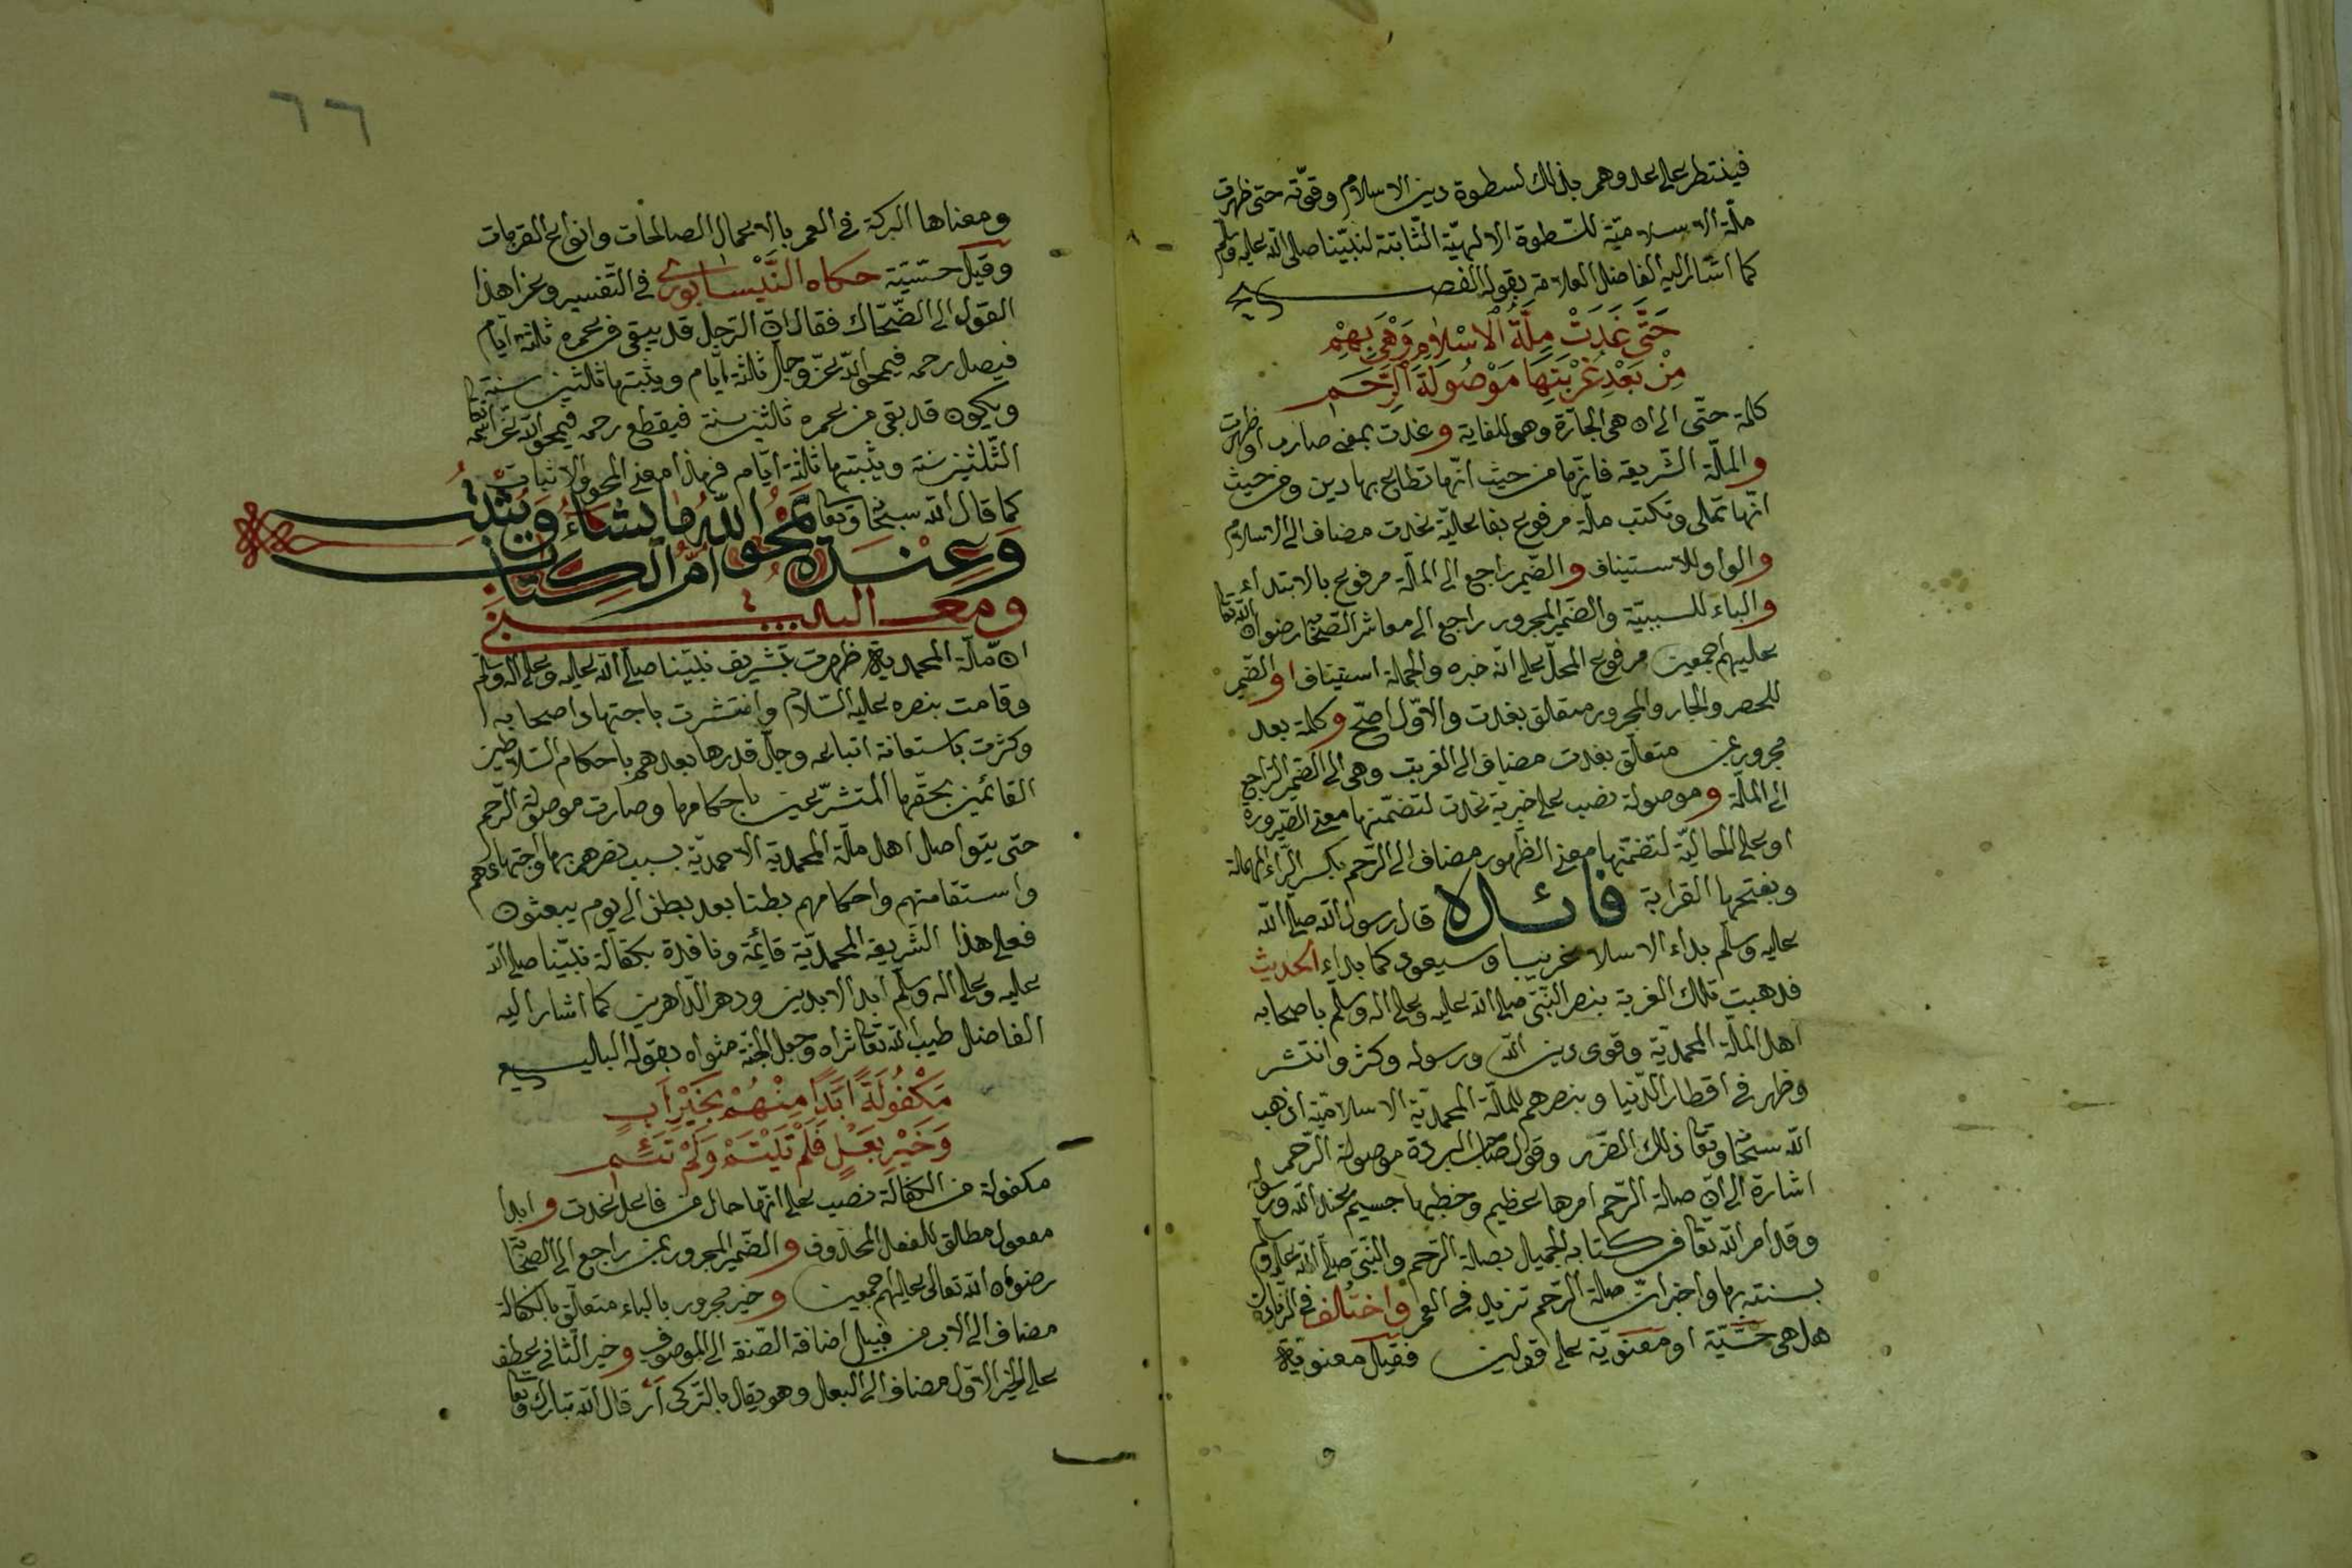 فينتظر على عدوهم بذلك لسطوة دين الاسلام وقوّته حتى ظهرت
ملّة الاسلاميّة للسّطوة الالهيّة الثّابتة لنبيّنا صلى الله عليه وسلم
كما اشار اليه الفاضل العلامة بقوله الفصيح
حَتَّى غَدَتْ مِلَّةُ الْاِسْلَامِ وَهْيَ بِهِمْ
مِنْ بَعْدِ غُرْبَتِهَا مَوْصُولَةَ الرَّحِمِ
كلمة حتّى الى ان هى الجارّة وهى للغاية وغدت بمعنى صارت او ظهرت
والملّة الشّريعة فانّها من حيث انّها تطاع بها دين ومن حيث
انّها تملى وتكتب ملّة مرفوع بفاعليّة غدت مضاف الى الاسلام
والواو للاستيناف والضّمير راجع الى الملّة مرفوع بالابتداء
والباء للسببيّة والضّمير المجرور راجع الى معاشر الصّحابة رضوان الله تعا
عليهم اجمعين مرفوع المحلّ على انّه خبره والجملة استيناف او الضّمير
للحصر والجار والمجرور متعلق بغدت والاوّل اصحّ وكلمة بعد
مجرور بمن متعلّق بغدت مضاف الى الغربة وهى الى الضّمير الرّاجع
الى الملّة وموصولة نصب على خبرية غدت لتضمّنها معنى الصّيرورة
او على الحاليّة لتضمّنها معنى الظّهور مضاف الى الرّحم بكسر الرّاء المهملة
وبفتحها القرابة فائدة قال رسول الله صلّى الله
عليه وسلّم بداء الاسلام غريبا وسيعود كما بداء الحديث
فذهبت تلك الغربة بنصر النّبىّ صلى الله عليه وعلى اله وسلم باصحابه
اهل الملّة المحمديّة وقوى دين الله ورسوله وكثر وانتشر
وظهر فى اقطار الدّنيا وبنصرهم للملّة المحمديّة الاسلاميّة اذهب
الله سبحانه وتعا ذلك الضّرر وقول صاحب البردة موصولة الرّحم
اشارة الى انّ صلة الرّحم امرها عظيم وخطبها جسيم عند الله ورسوله
وقد امر الله تعا فى كتابه الجميل بصلة الرّحم والنّبىّ صلّى الله عليه وسلم
بسنته بها واخبر انّ صلة الرّحم تزيد فى العمر واختلف فى الزيادة
هل هى حسّيّة او معنويّة على قولين فقيل معنوية
ومعناها البركة فى العمر بالاعمال الصالحات وانواع القربات
وقيل حسّيّة حكاه النَّيْسابورى فى التّفسير وعزا هذا
القول الى الضّحّاك فقال انّ الرّجل قد يبقى من عمره ثلثة ايّام
فيصل رحمه فيمحو الله عزّ وجلّ ثلثة ايّام ويثبتها ثلثين سنة
ويكون قد بقى من عمره ثلثين سنة فيقطع رحمه فيمحو الله عزّ اسمه
الثّلثين سنة ويثبتها ثلثة ايّام فهذا معنى المحو والاثبات
كما قال الله سبحانه وتعا يَمْحُو اللّٰهُ مَا يَشَاءُ وَيُثْبِتُ
وَعِنْدَهُ اُمُّ الْكِتَابِ
ومعنى البيت
انّ ملّة المحمدية ظهرت بتشريف نبيّنا صلّى الله عليه وعلى اله وسلّم
وقامت بنصره عليه السّلام وانتشرت باجتهاد اصحابه
وكثرت باستعانة اتباعه وجلّ قدرها بعدهم باحكام السّلاطين
القائمين بحقّها المتشرّعين باحكامها وصارت موصولة الرّحم
حتى يتواصل اهل ملّة المحمديّة الاحمديّة بسبب نصرهم بها واجتهادهم
واستقامتهم واحكامهم بطنا بعد بطن الى يوم يبعثون
فعلى هذا الشّريعة المحمديّة قائمة ونافذة بكفالة نبيّنا صلى الله
عليه وعلى اله وسلّم ابد الابدين ودهر الدّاهرين كما اشار اليه
الفاضل طيب الله تعا ثراه وجعل الجنّة مثواه بقوله البليغ
مَكْفُولَةً اَبَدًا مِنْهُمْ بِخَيْرِ اَبٍ
وَخَيْرِ بَعْلٍ فَلَمْ تَيْتَمْ وَلَمْ تَئِمِ
مكفولة من الكفالة نصب على انّها حال من فاعل غدت وابدا
مفعول مطلق للفعل المحذوف والضّمير المجرور بمن راجع الى الصّحابة
رضوان الله تعالى عليهم اجمعين وخير مجرور بالباء متعلّق بالكفالة
مضاف الى الاب من قبيل اضافة الصّفة الى الموصوف وخير الثّانى عطف
على الخير الاوّل مضاف الى البعل وهو يقال بالتّركى ار قال الله تبارك وتعا